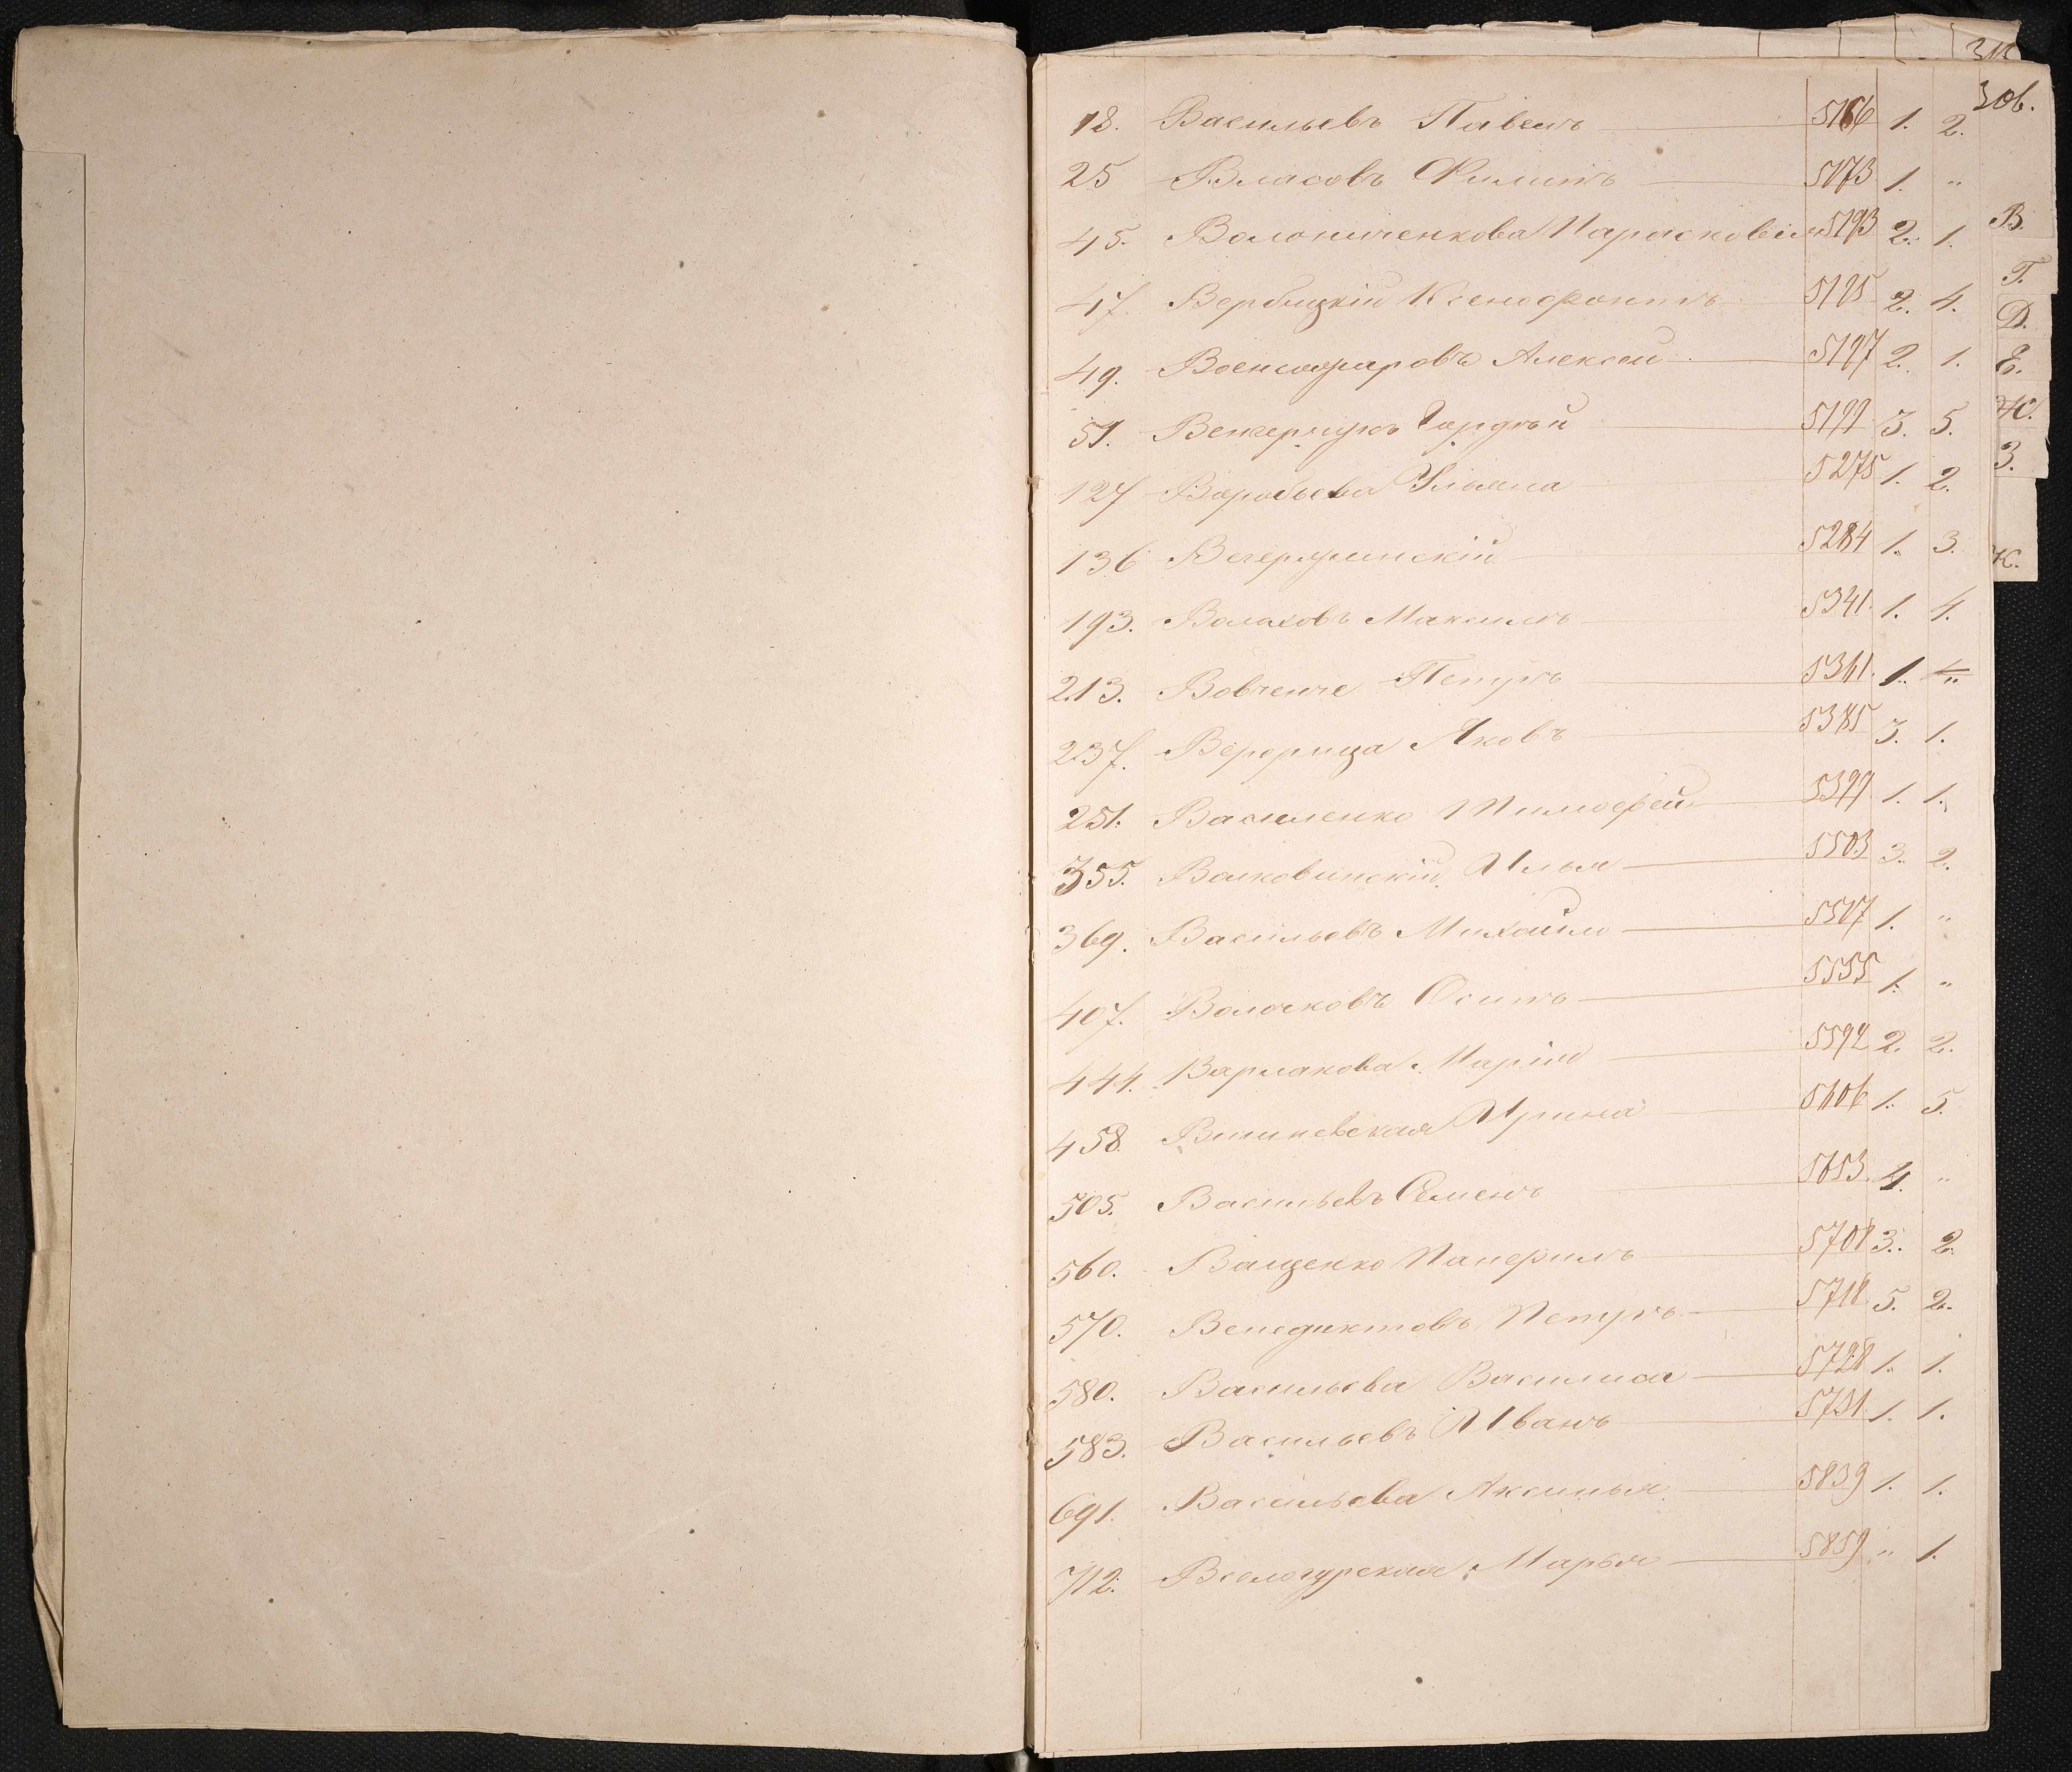 306.
18. Васильевъ Павелъ 5166 1. 2.
25 Власовъ Филипъ 5173 1. "
45. Волониченкова Парасковія 5193 2. 1.
47. Вербицкій Ксенофонтъ 5195 2. 4.
49. Алексей 5197 2. 1.
51. Венгерчукъ Гордѣй 5199 3. 5.
127 Воробьева Ульяна 5275 1. 2.
136 5284 1. 3.
193. Волоховъ Максимъ 5341. 1. 4.
213. Петръ 5361. 1. "
237. Яковъ 5385 3. 1.
251. Василенко Тимофей 5399 1. 1.
355. Волковинскій Илья 5503 3. 2.
369. Васильевъ Михайло 5517 1. "
407. Осипъ 5555 1. "
444. Варлакова Марія 5592 2. 2.
458. Вишневская Ирина 5606 1. 5.
505. Васильевъ Семенъ 5653. 4. "
560. Ващенко 5708 3. 2.
570. Венедиктовъ Петръ 5718. 5. 2.
580. Васильева Василиса 5728 1. 1.
583. Васильевъ Иванъ 5731. 1. 1.
691. Васильева Аксинья 5839 1. 1.
712. Марья 5859 " 1.
В.
Г.
Д.
Е.
Ж.
З.
К.